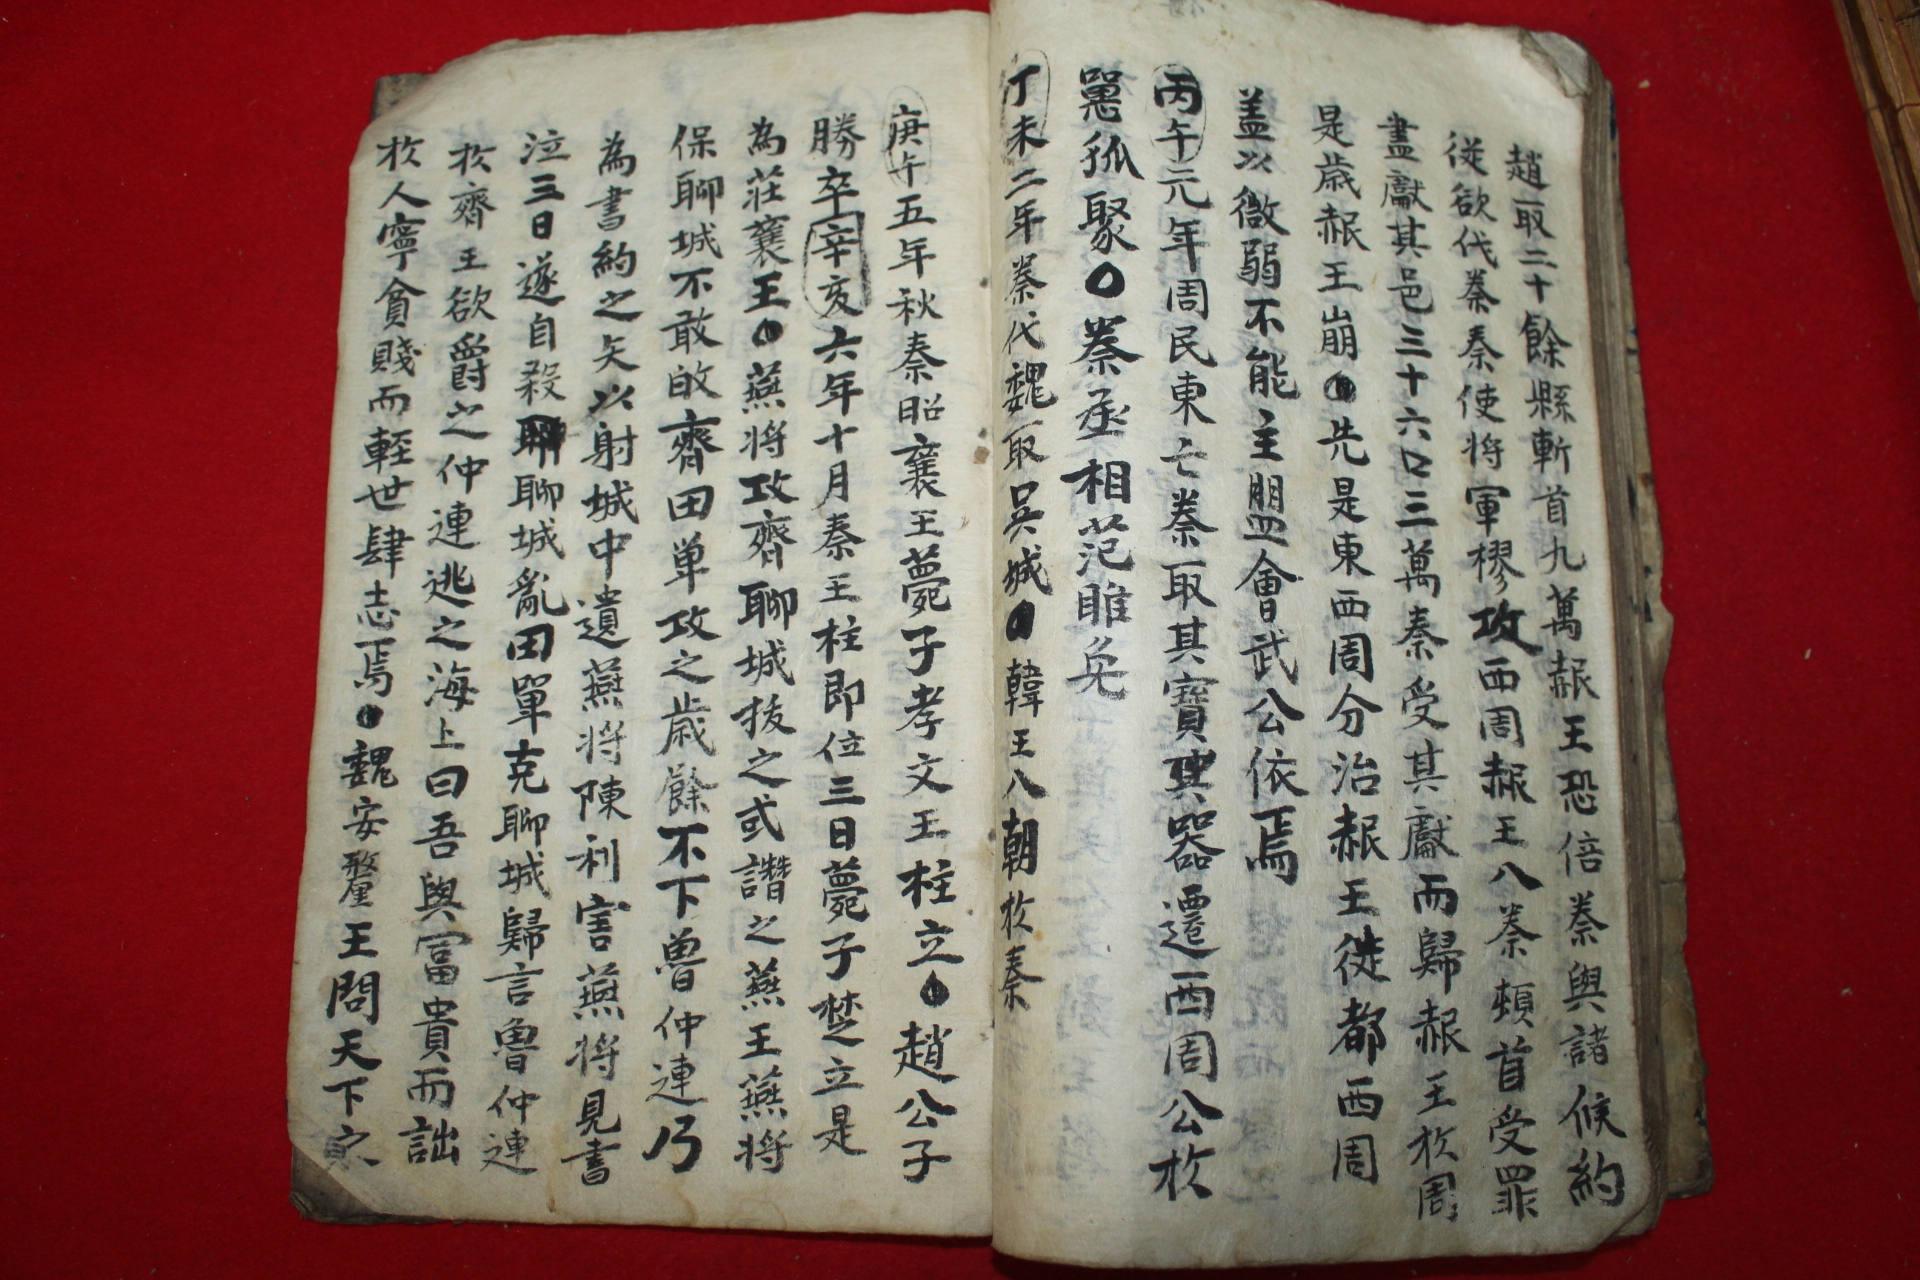 趙取二十餘縣斬首九萬赧王恐倍秦與諸候約
從欲伐秦秦使將軍樛攻西周赧王入秦頓首受罪
盡獻其邑三十六口三萬秦受其獻而歸赧王於周
是歲赧王崩○先是東西周分治赧王徙都西周
盖以微弱不能主盟會武公依焉
丙午元年周民東亡秦取其寶器遷西周公於
䙡狐聚○秦丞相范睢免
丁未二年秦伐魏取吳城○韓王入朝於秦
庚午五年秋秦昭襄王薨子孝文王柱立○趙公子
勝卒辛亥六年十月秦王柱即位三日薨子楚立是
為莊襄王○燕將攻齊聊城拔之或譖之燕王燕將
保聊城不敢故齊田单攻之歲餘不下魯仲連乃
為書約之矢以射城中遺燕將陳利害燕將見書
泣三日遂自殺聊城亂田單克聊城歸言魯仲連
於齊王欲爵之仲連逃之海上曰吾與富貴而詘
於人寧貧賤而輕世肆志焉○魏安釐王問天下之